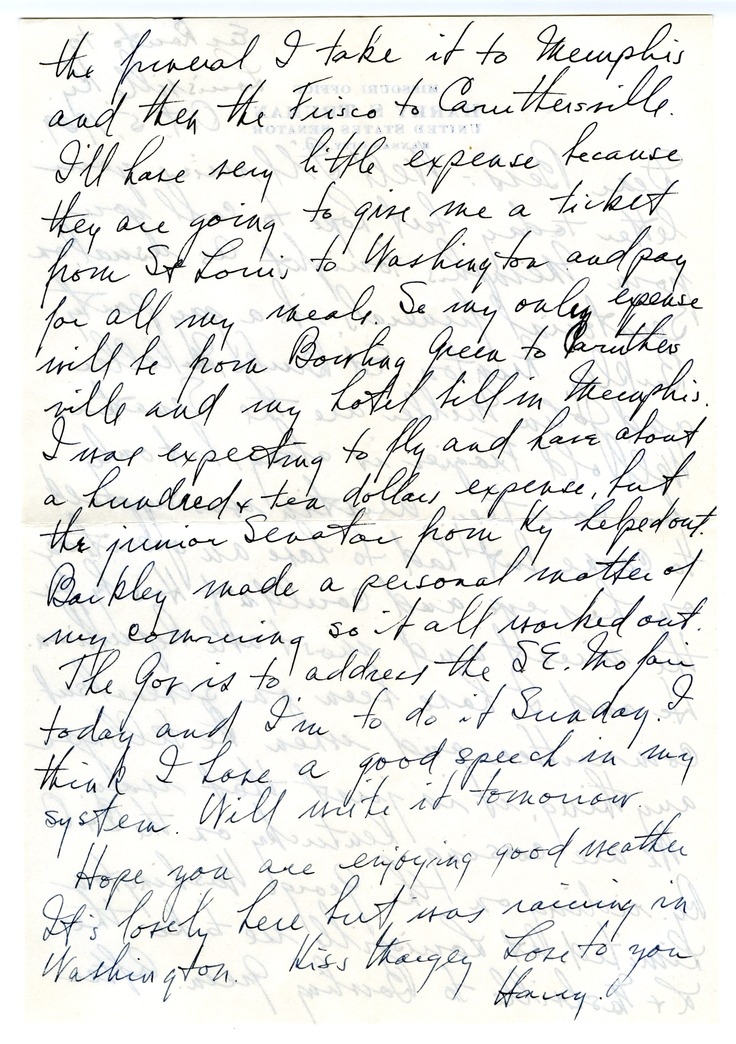 the funeral I take it to Memphis
and then the Frisco to Caruthersville.
I'll have very little expense because
they are going to give me a ticket
from St Louis to Washington and pay
for all my meals. So my only expense
will be from Bowling Green to Caruthers
ville and my hotel bill in Memphis.
I was expecting to fly and have about
a hundred & ten dollars expense, but
the junior Senator from Ky helped out.
Barkley made a personal matter of
my comming so it all worked out.
The Gov is to address the S.E. Mo fair
today and I'm to do it Sunday. I
think I have a good speech in my
system. Will write it tomorrow.
Hope you are enjoying good weather
It's lovely here but was raining in
Washington. Kiss Margey Love to you
Harry.